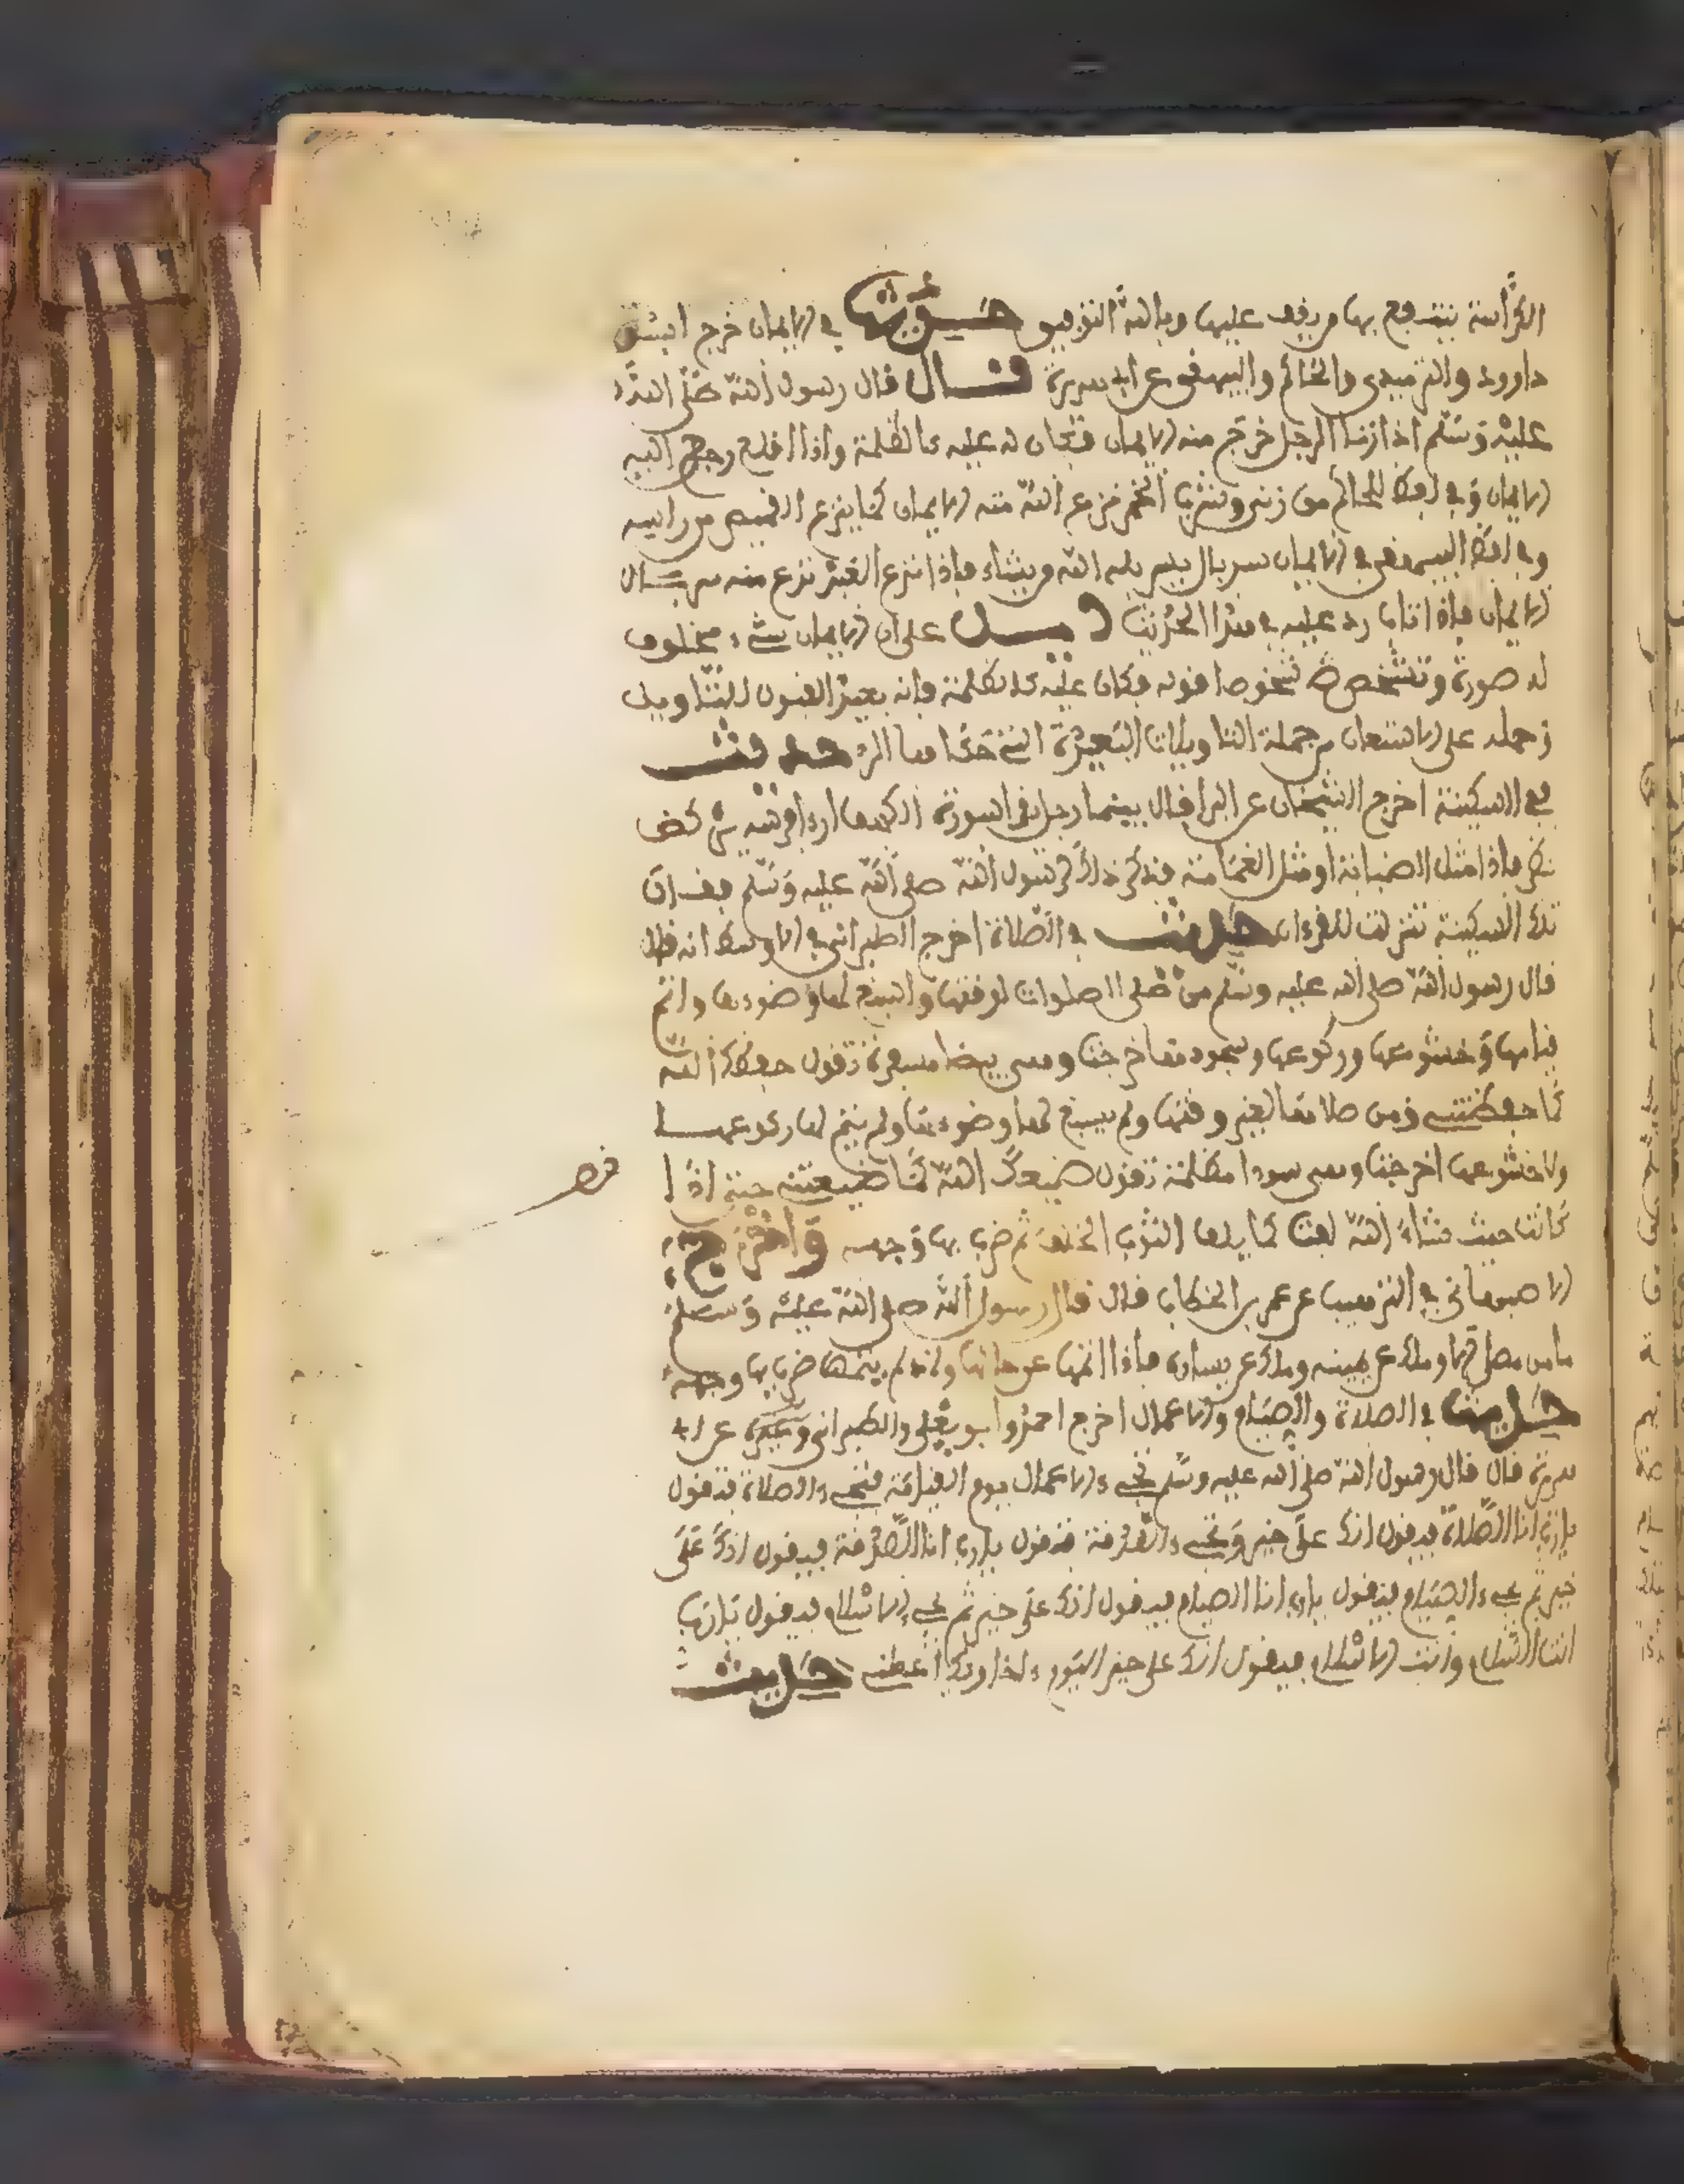 الكراسة ينتفع بها من يقف عليها وبالله التوفيق حديث في الايمان خرج ابو
داوود والترميدي والحاكم والبيهقي عن ابي هريرة قال قال رسول الله صلى الله
عليه وسلم اذا زنا الرجل خرج منه الايمان فكان له عليه كالظلمة واذا اقلع رجع اليه
الايمان وفي لفظ للحاكم من زنى وشرب الخمر نزع الله منه الايمان كما ينزع القميص من راسه
وفي لفظ البيهقي في الايمان سربال يسربله الله من يشاء فاذا نزع العبد نزع منه سربال
الايمان فاذا تاب رد عليه في هذا الحديث دليل على ان الايمان شيء مخلوق
له صورة وتشخص قوله فكان عليه كالظلمة فانه بعيد القبول للتاويل
وحمله على من جملة التاويلات البعيدة التي حديث
في السكينة اخرج الشيخان عن البرا قال بينما رجل يقرا سورة الكهف اذ راى فرسه تركض
نظر فاذا مثل الضبابة او مثل الغمامة فذكر ذلك لرسول الله صلى الله عليه وسلم فقال
تلك السكينة تنزلت للقرءان حديث في الصلاة اخرج الطبراني في الاوسط انه قال
قال رسول الله صلى الله عليه وسلم من صلى الصلوات لوقتها واسبغ لها وضوءها واتم
قيامها وخشوعها وركوعها وسجودها خرجت وهي بيضا مسفرة تقول حفظك الله
كما حفظتني ومن صلاها لغير وقتها ولم يسبغ لها وضوءها ولم يتم لها ركوعها
ولا خشوعها خرجت وهي سودا مظلمة تقول ضيعك الله كما ضيعتني حتى اذا
كانت حيث شاء الله لفت كما يلف الثوب الخلق ثم ضرب بها وجهه واخرج
الاصبهاني في الترغيب عن عمر بن الخطاب قال قال رسول الله صلى الله عليه وسلم
ما من مصل الا وملك عن يمينه وملك عن يساره فاذا اتمها عرجا بها وان لم يتمها ضرب بها وجهه
حديث في الصلاة والصيام والاعمال اخرج احمد وابو يعلى والطبراني وغيره عن ابي
هريرة قال قال رسول الله صلى الله عليه وسلم تجيء الاعمال يوم القيامة فتجيء الصلاة فتقول
يا رب انا الصلاة فيقول انك على خير وتجيء الصدقة فتقول يا رب انا الصدقة فيقول انك على
خير ثم يجيء الصيام فيقول يا رب انا الصيام فيقول انك على خير ثم يجيء الاسلام فيقول يا رب
انت السلام وانا الاسلام فيقول انك على خير اليوم بك اخذ وبك اعطي حديث